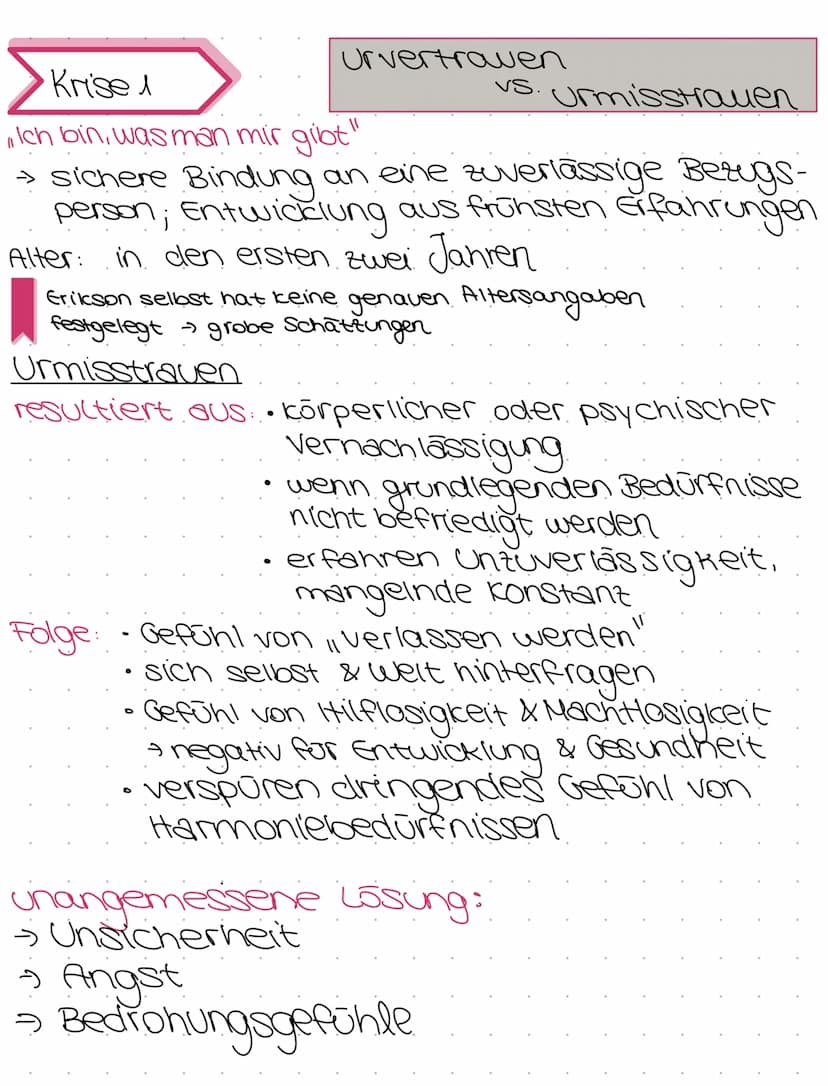 Krise 1
Urvertrauen
vs. Urmisstrauen
„Ich bin, was man mir gibt"
→ sichere Bindung an eine zuverlässige Bezugs-
person; Entwicklung aus frühsten Erfahrungen
Alter: in den ersten zwei Jahren
Erikson selbst hat keine genauen Altersangaben
festgelegt → grobe Schätzungen
Urmisstrauen
resultiert aus: • körperlicher oder psychischer
Vernachlässigung
• wenn grundlegenden Bedürfnisse
nicht befriedigt werden
• erfahren Unzuverlässigkeit,
mangelnde Konstanz
Folge: • Gefühl von „verlassen werden"
• sich selbst & Welt hinterfragen
• Gefühl von Hilflosigkeit & Machtlosigkeit
→ negativ für Entwicklung & Gesundheit
• verspüren dringendes Gefühl von
Harmoniebedürfnissen
unangemessene Lösung:
→ Unsicherheit
→ Angst
→ Bedrohungsgefühle